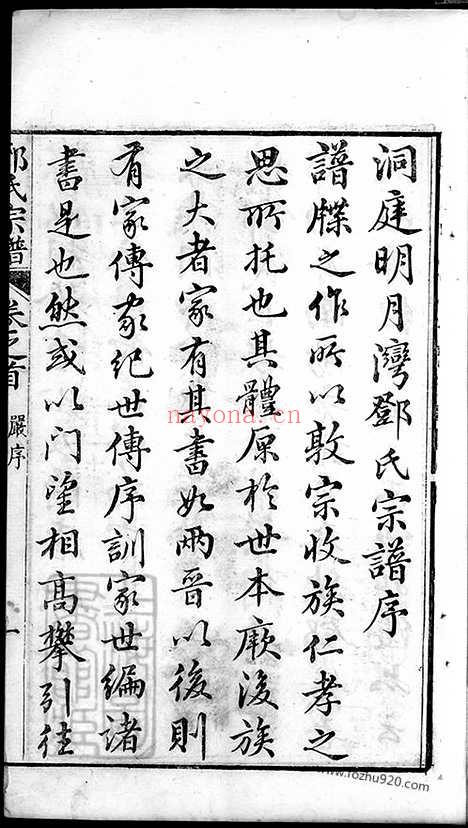 洞庭明月灣鄧氏宗譜序
譜牒之作所以敦宗收族仁孝之
思所托也其體原於世本厥後族
之大者家有其書如兩晉以後則
有家傳家紀世傳序訓家世編諸
書是也然或以門望相高攀引往
鄧氏宗譜 卷之首 嚴序 一
nayona.cn
www.rozhu920.com